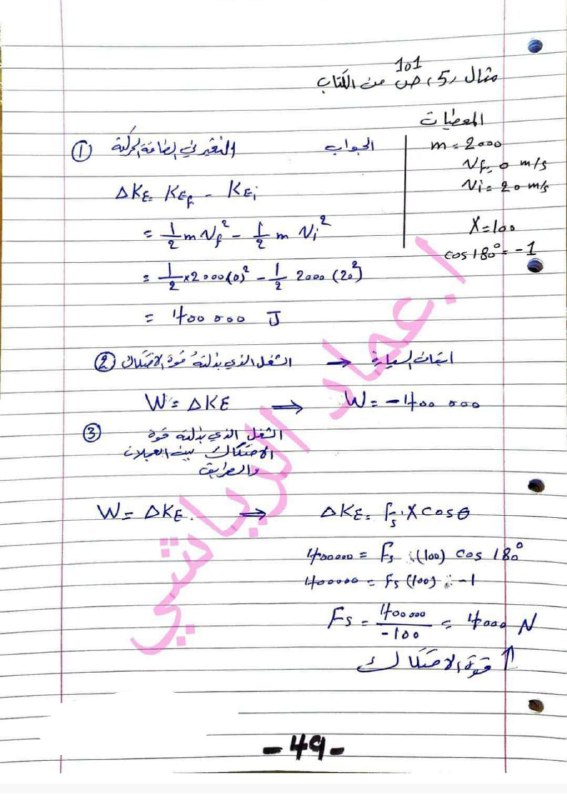 مثال (5) ص 101 من الكتاب
المعطيات
m = 2000
Vf = 0 m/s
Vi = 20 m/s
X = 100
cos 180° = -1
الجواب
① التغير في الطاقة الحركية
ΔKE = KEf - KEi
= 1/2 m Vf² - 1/2 m Vi²
= 1/2 × 2000 (0)² - 1/2 2000 (20²)
= 400 000 J
② الشغل الذي بذلته قوة الاحتكاك → السيارة
W = ΔKE → W = -400 000
③ الشغل الذي بذلته قوة
الاحتكاك بين العجلات
والطريق
W = ΔKE. ⇒ ΔKE = fs . X cosθ
400000 = fs . (100) cos 180°
400000 = fs (100) . -1
Fs = 400000 / -100 = 4000 N
↑ قوة الاحتكاك
أ.عماد الرياشي
- 49 -